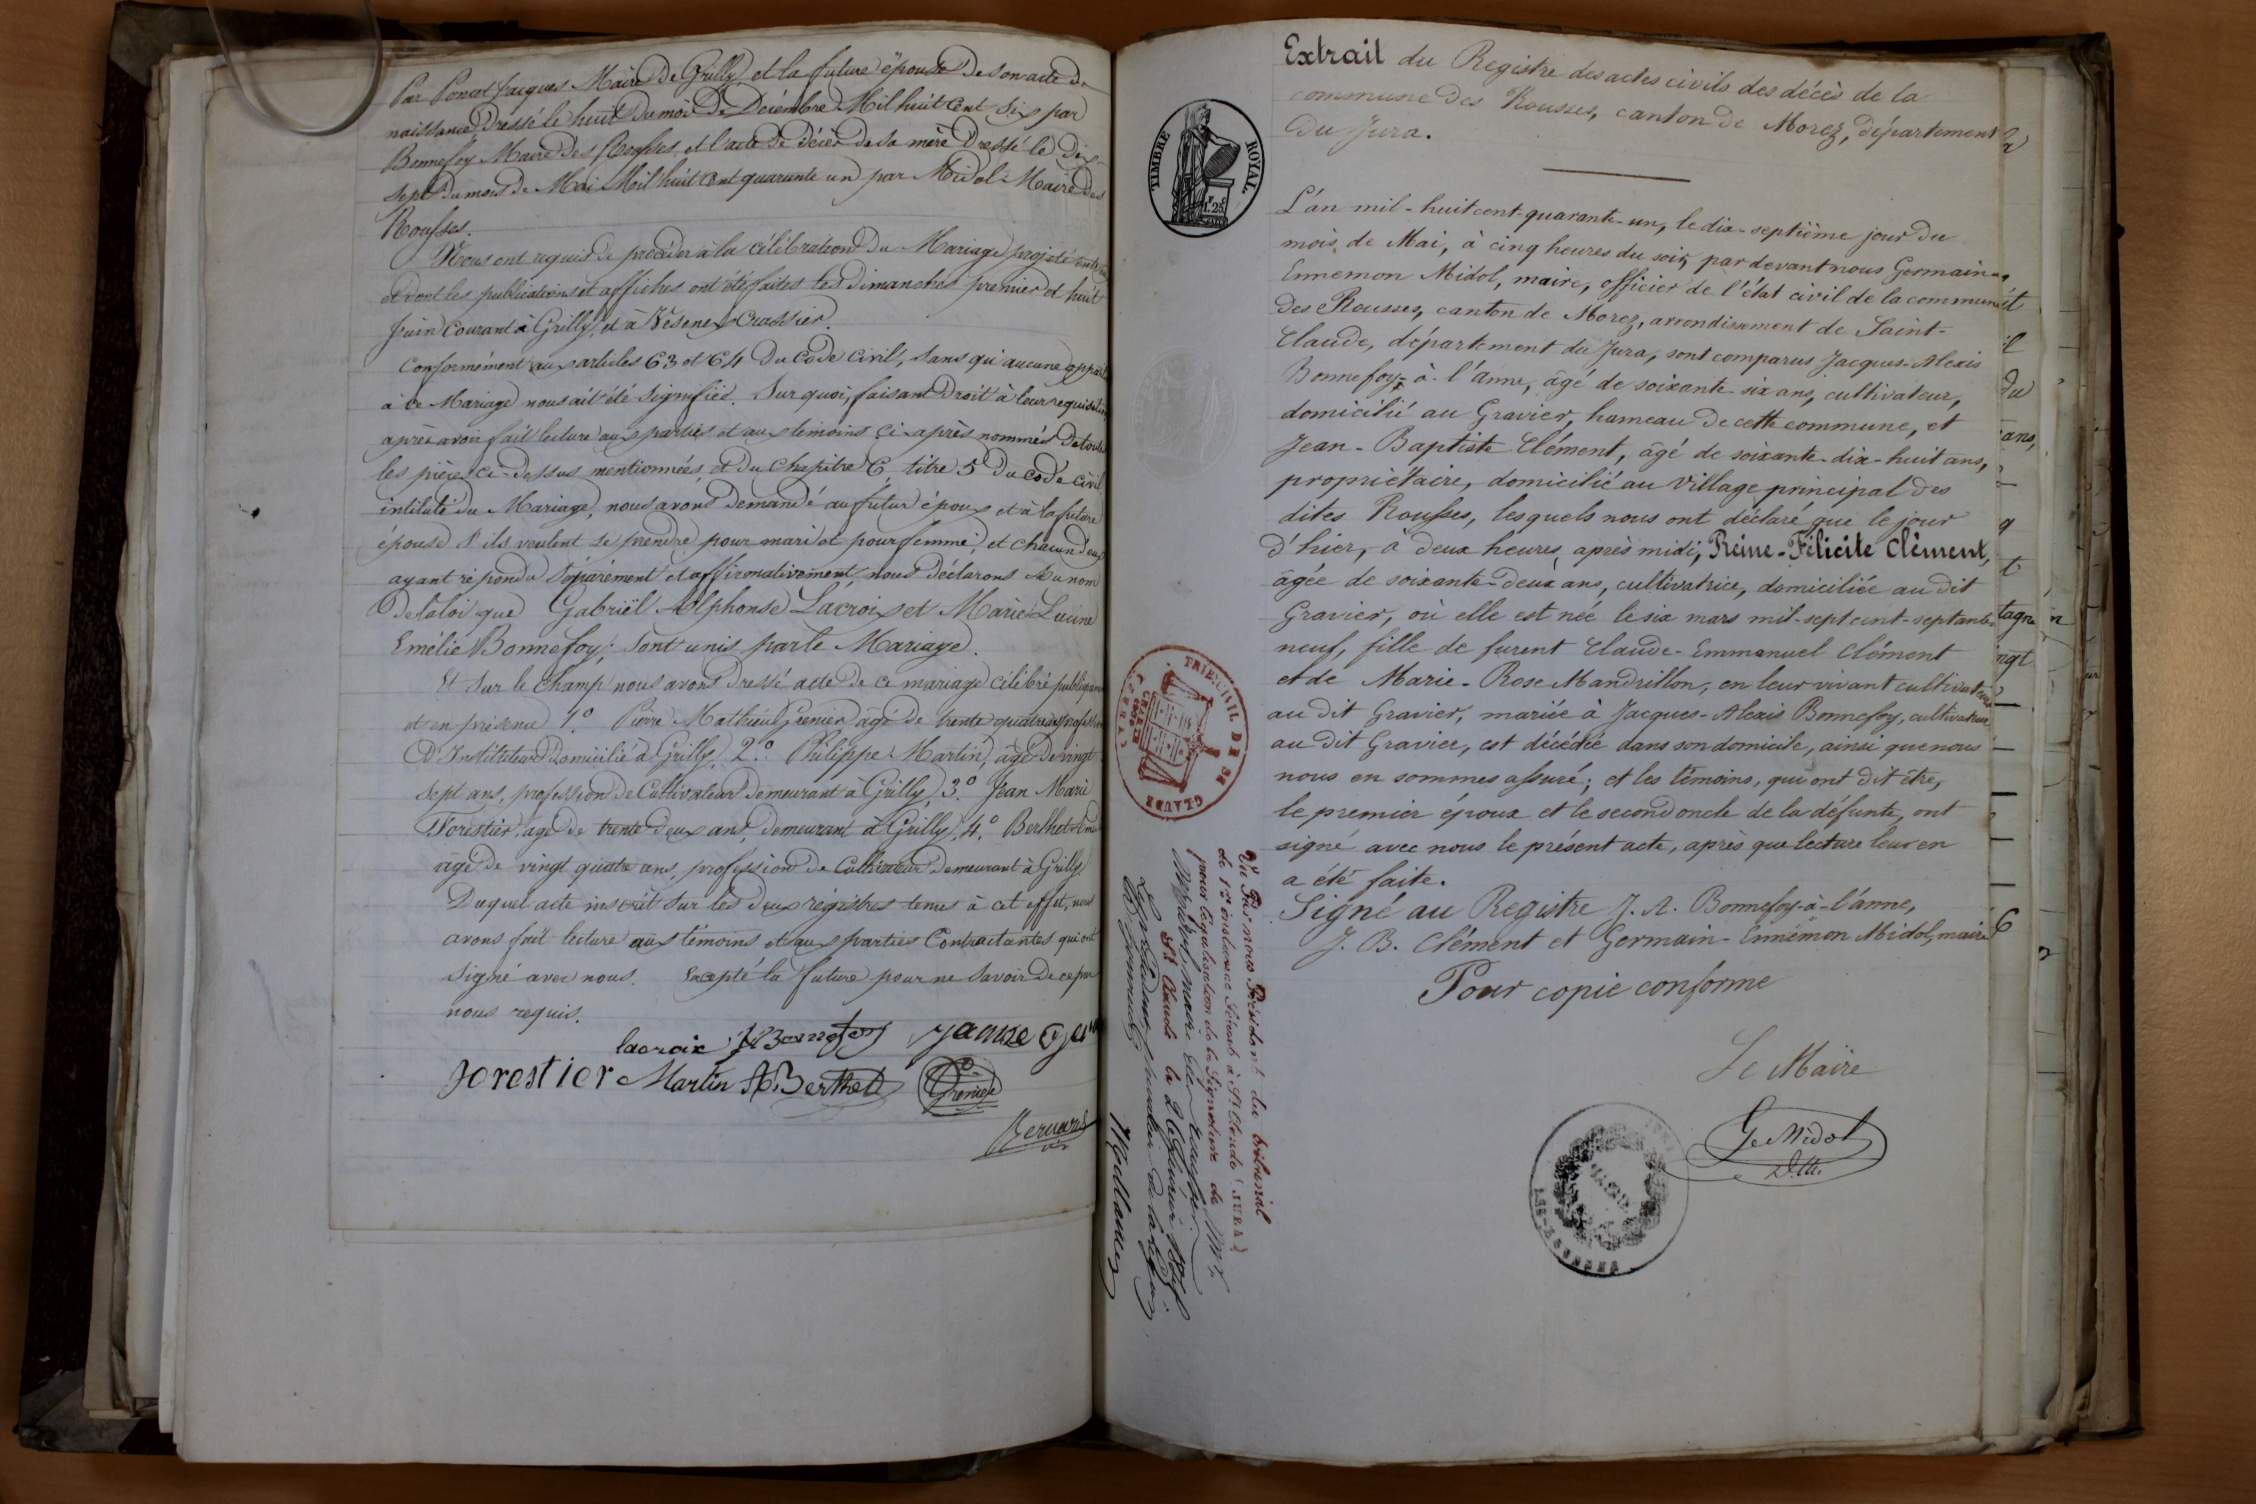 Par Poncet Jacques Maire de Grilly et la future épouse de son acte de
naissance dressé le huit du mois de Décembre Mil huit cent six par
Bonnefoy Maire des Rousses, et l'acte de décès de sa mère dressé le dix
sept du mois de Mai Mil huit cent quarante un par Midol Maire des
Rousses.
Nous ont requis de procéder à la célébration du Mariage projeté entr'eux
et dont les publications et affiches ont été faites les dimanches premier et huit
Juin courant à Grilly et à Vésenex Crassier.
Conformément aux articles 63 et 64 du code civil, sans qu'aucune
à ce Mariage nous ait été signifiée. Sur quoi, faisant droit à leur requisition
après avoir fait lecture aux parties et aux témoins ci-après nommés de toutes
les pièces ci-dessus mentionnées et du chapitre 6, titre 5 du code civil
intitulé du Mariage, nous avons demandé au futur époux et à la future
épouse s'ils veulent se prendre pour mari et pour femme, et chacun d'eux
ayant répondu séparément et affirmativement, nous déclarons au nom
de la loi que Gabriël Alphonse Lacroix et Marie Lucine
Emélie Bonnefoy; sont unis par le Mariage.
Et sur le champ nous avons dressé acte de ce mariage célébré publiquement
et en présence 1.º Pierre Mathieu Grenier âgé de trente quatre ans profession
D'Instituteur Domicilié à Grilly, 2.º Philippe Martin, âgé de vingt
sept ans, profession de Cultivateur demeurant à Grilly, 3.º Jean Marie
Forestier, agé de trente deux ans, demeurant à Grilly, 4.º Berthet
âgé de vingt quatre ans, profession de Cultivateur demeurant à Grilly
Duquel acte inscrit sur les deux régistres tenus à cet effet, nous
avons fait lecture aux témoins et aux parties Contractantes qui ont
signé avec nous. excepté la future pour ne savoir de ce par
nous requis.
lacroix Bonnefoy
forestier Martin Berthet Grenier
Extrait du Registre des actes civils des décès de la
commune des Rousses, canton de Morez, département
du Jura.
TIMBRE ROYAL.
1.F 25.C
L'an mil-huit cent-quarante-un, le dix-septième jour du
mois de Mai, à cinq heures du soir, par devant nous Germain
Ennemon Midol, maire, officier de l'état civil de la commune
des Rousses, canton de Morez, arrondisement de Saint-
Claude, département du Jura, sont comparus Jacques-Alexis
Bonnefoy-à-l'anne, âgé de soixante-six ans, cultivateur,
domicilié au Gravier, hameau de cette commune, et
Jean-Baptiste Clément, âgé de soixante-dix-huit ans,
propriétaire, domicilié au Village principal des
dites Rousses, lesquels nous ont déclaré que le jour
d'hier, à deux heures, après midi, Reine-Félicite Clément,
âgée de soixante-deux ans, cultivatrice, domiciliée au dit
Gravier, où elle est née le six mars mil-sept cent-septante-
neuf, fille de furent Claude-Emmanuel Clément
et de Marie-Rose Mandrillon, en leur vivant cultivateurs
au dit Gravier, mariée à Jacques-Alexis Bonnefoy, cultivateur
au dit Gravier, est décédée dans son domicile, ainsi que nous
nous en sommes assuré; et les témoins, qui ont dit être,
le premier époux et le second oncle de la défunte, ont
signé avec nous le présent acte, après que lecture leur en
a été faite.
Signé au Registre J. A. Bonnefoy-à-l'anne,
J. B. Clément et Germain-Ennémon Midol, maire
Pour copie conforme
Le Maire
G. E. Midol
TRIB. CIVIL DE ST CLAUDE
CHARTE
Vu Par nous Président du tribunal
de 1re instance séant à St Claude (JURA)
pour légalisation de la signature de Mr
St Claude le